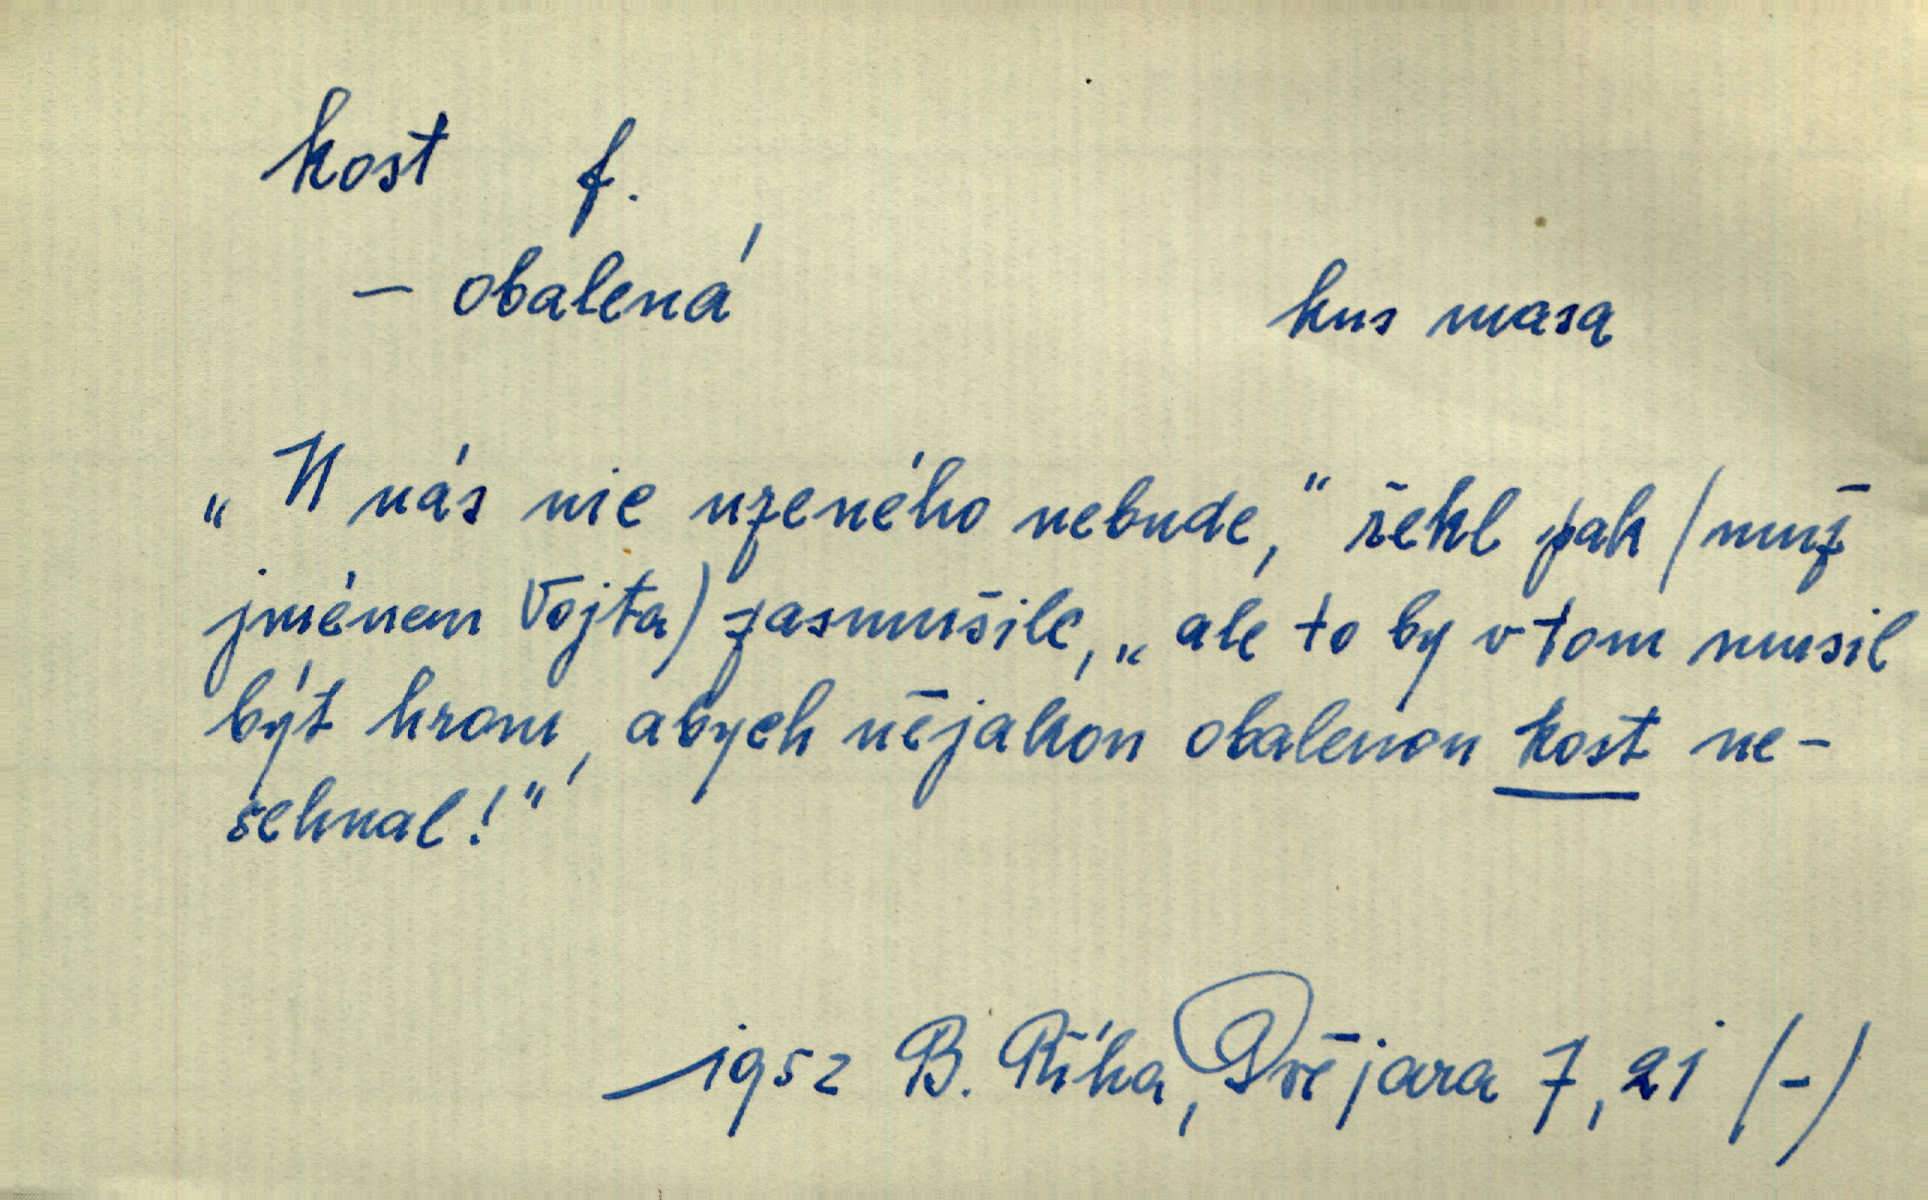 kost f.
– obalená kus masa
„U nás nic uzeného nebude,“ řekl pak (muž
jménem Vojta) zasmušile, „ale to by v tom musil
být hrom, abych nějakou obalenou kost ne-
sehnal!“
1952 B. Říha, Dvě jara 7, 21 (-)